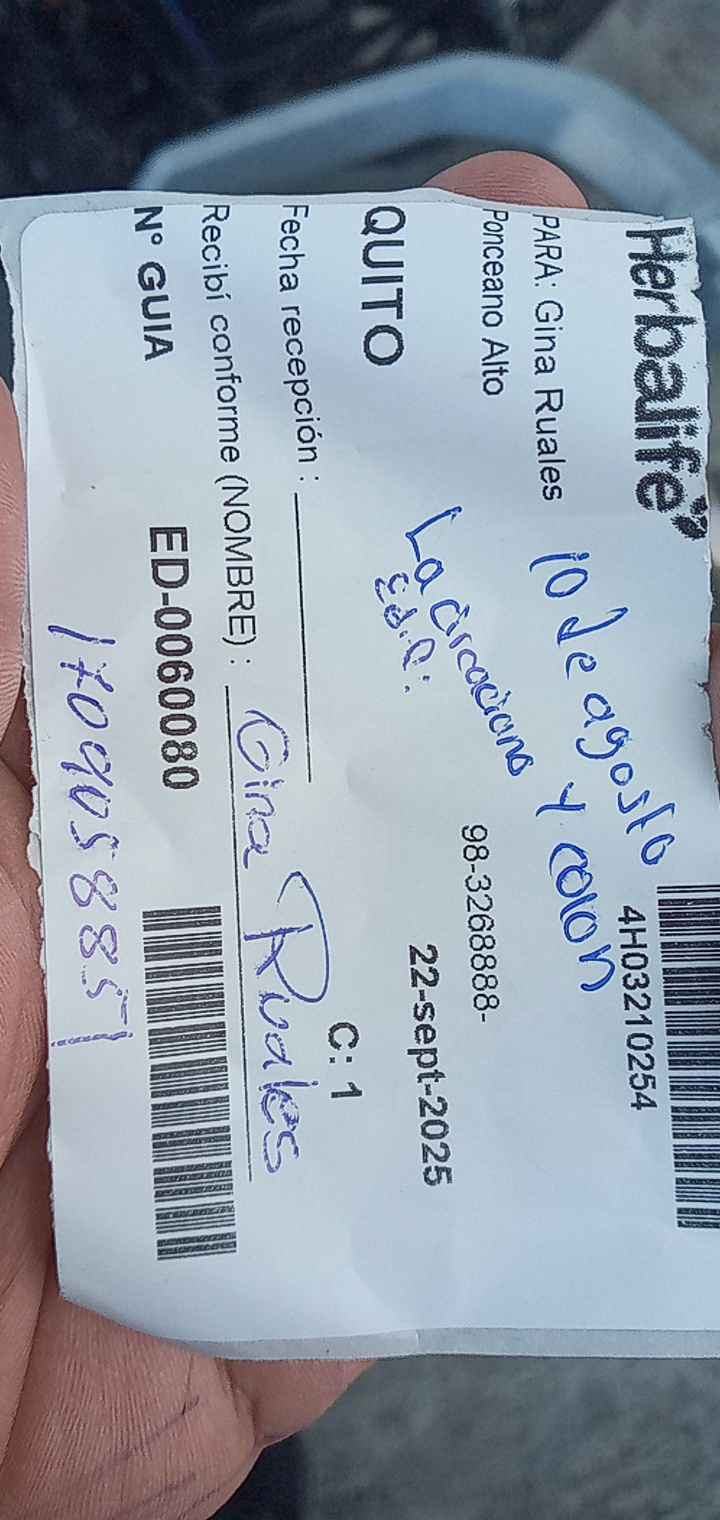 Herbalife
4H03210254
PARA: Gina Ruales
10 de agosto
y colon
Ponceano Alto
98-3268888-
La circaciana
Edif:
QUITO
22-sept-2025
Fecha recepción :
C: 1
Recibí conforme (NOMBRE) : Gina Ruales
Nº GUIA ED-0060080
1709058857